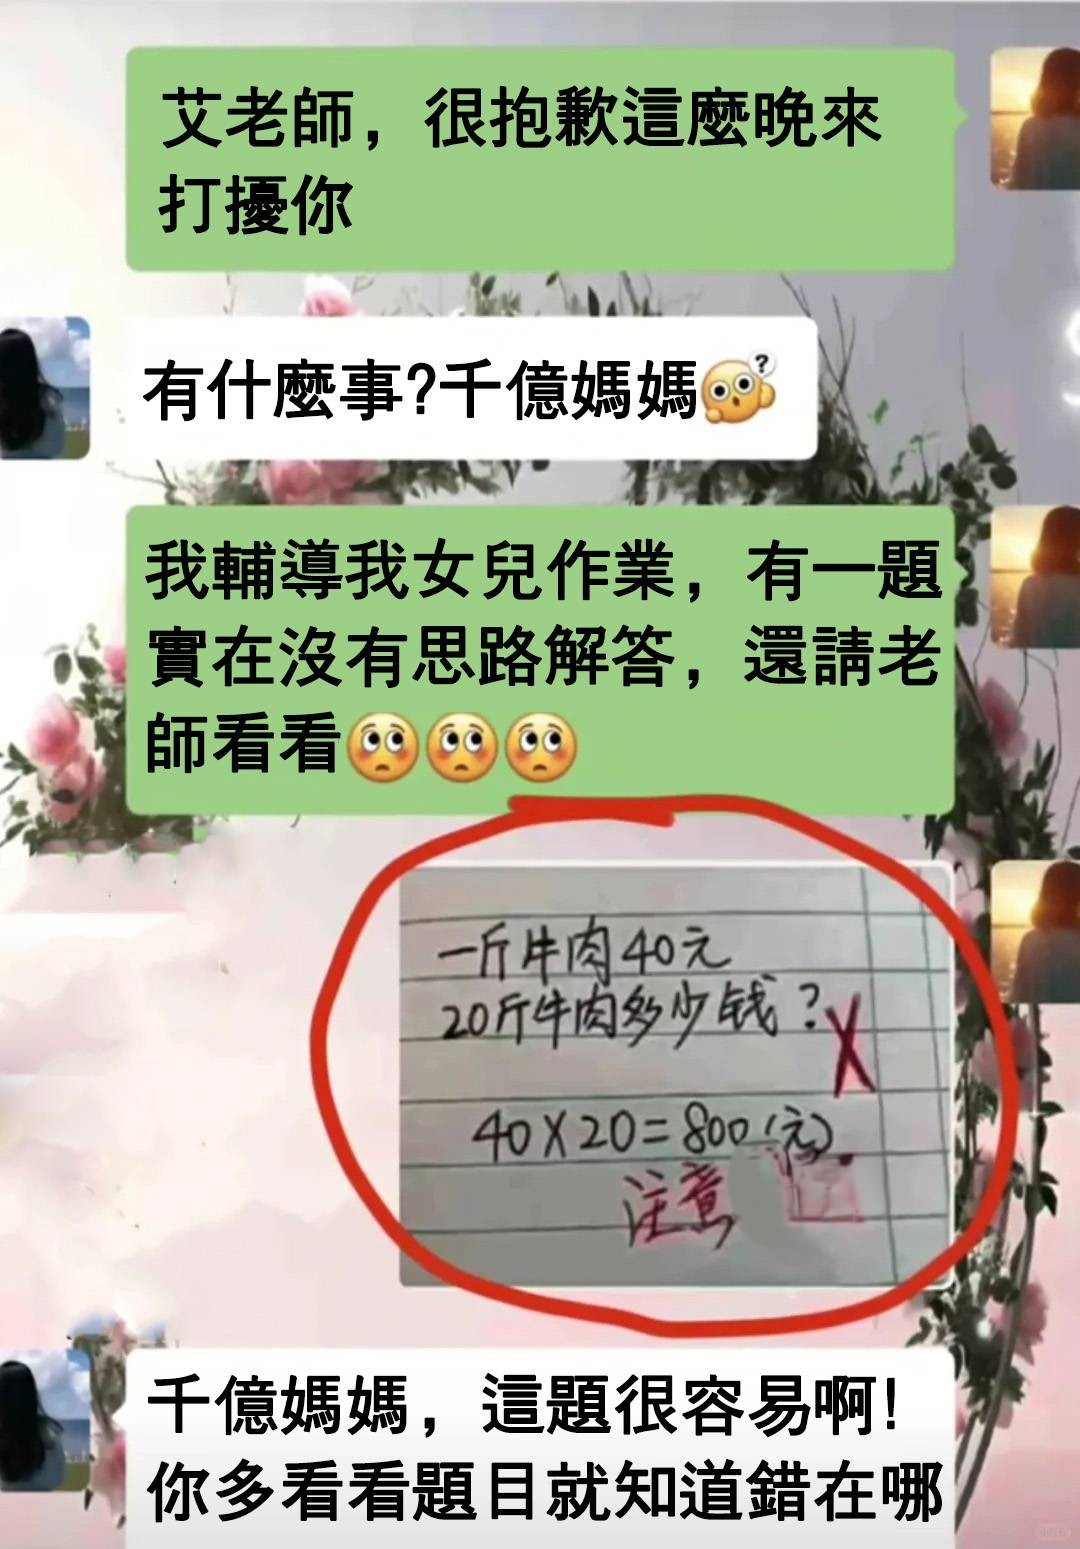 艾老師，很抱歉這麼晚來
打擾你
有什麼事?千億媽媽
我輔導我女兒作業，有一題
實在沒有思路解答，還請老
師看看
一斤牛肉40元
20斤牛肉多少钱？
40X20=800(元)
注意
千億媽媽，這題很容易啊!
你多看看題目就知道錯在哪